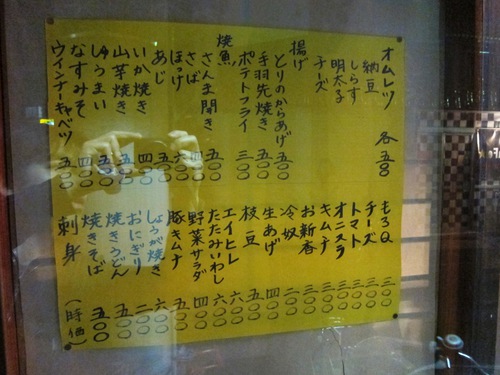 オムレツ 各五〇〇
納豆
しらす
明太子
チーズ
揚げ
とりのからあげ 五〇〇
手羽先焼き 五〇〇
ポテトフライ 三〇〇
焼魚
さんま開き 五〇〇
さば 四〇〇
ほっけ 六〇〇
あじ 五〇〇
いか焼き 四〇〇
山芋焼き 五〇〇
しゅうまい 五〇〇
なすみそ 四〇〇
ウインナーキャベツ 五〇〇
もろQ 三〇〇
チーズ 三〇〇
トマト 三〇〇
オニスラ 三〇〇
キムチ 三〇〇
お新香 三〇〇
冷奴 二〇〇
生あげ 四〇〇
枝豆 五〇〇
エイヒレ 六〇〇
たたみいわし 六〇〇
野菜サラダ 四〇〇
豚キムチ 五〇〇
しょうが焼き 六〇〇
おにぎり 二〇〇
焼きうどん 五〇〇
焼きそば 五〇〇
刺身 (時価)